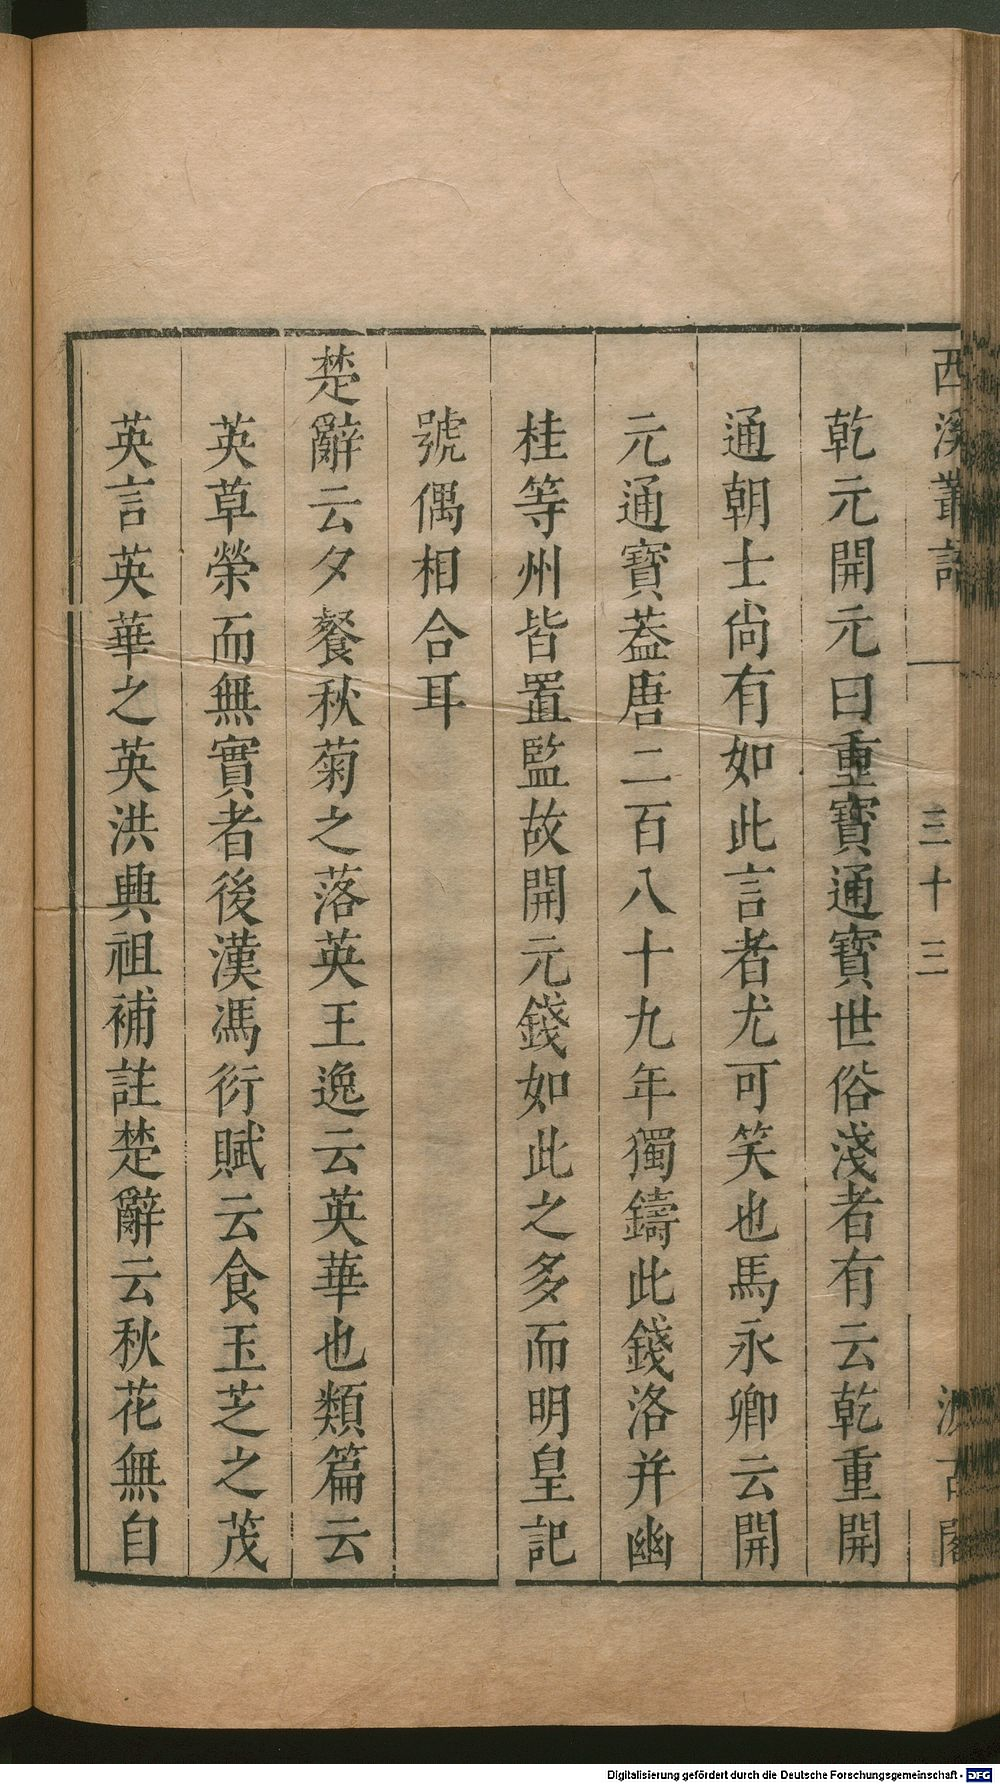 西溪叢語
三十三
汲古閣
乾元開元曰重寶通寶世俗淺者有云乾重開
通朝士尚有如此言者尤可笑也馬永卿云開
元通寶葢唐二百八十九年獨鑄此錢洛并幽
桂等州皆置監故開元錢如此之多而明皇記
號偶相合耳
楚辭云夕餐秋菊之落英王逸云英華也類篇云
英草榮而無實者後漢馮衍賦云食玉芝之茂
英言英華之英洪興祖補註楚辭云秋花無自
Digitalisierung gefördert durch die Deutsche Forschungsgemeinschaft - DFG